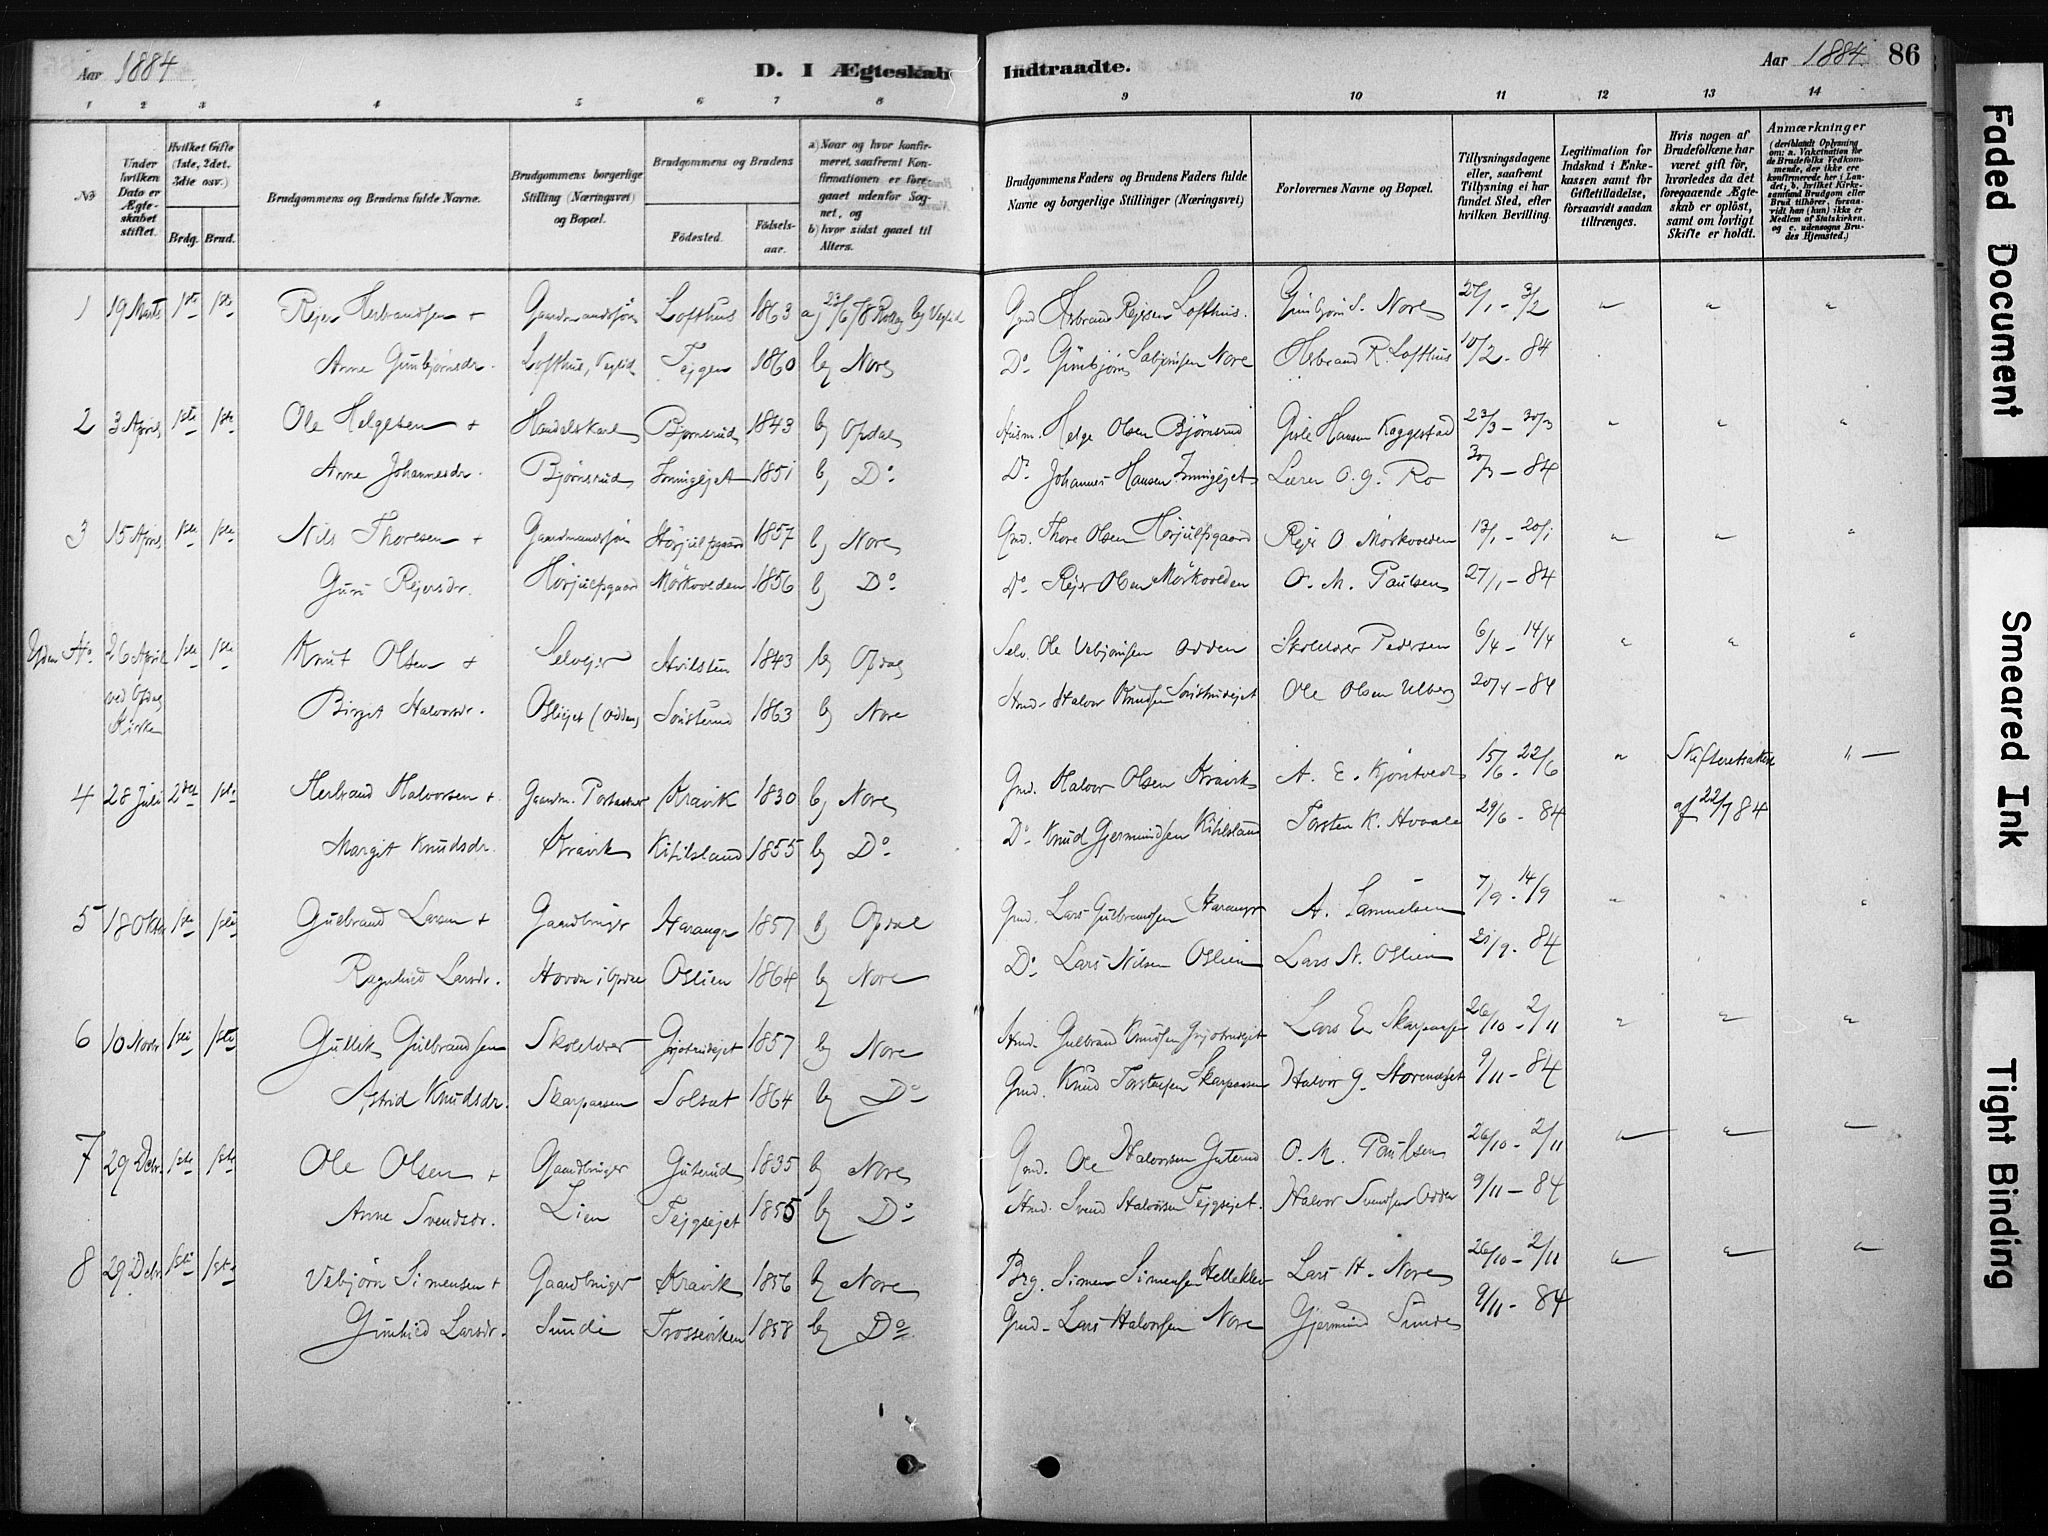 Aar 1884
D. I Ægteskab Indtraadte.
Aar 1884. 86
1 2 3 4 5 6 7 8 9 10 11 12 13 14
No
Under hvilken Dato er Ægteskabet stiftet.
Hvilket Gifte (1ste, 2det, 3die osv.)
Brdg. Brud.
Brudgommens og Brudens fulde Navne.
Brudgommens borgerlige Stilling (Næringsvei) og Bopæl.
Brudgommens og Brudens
Fødested. Fødselsaar.
a) Naar og hvor konfirmeret, saafremt Konfirmationen er foregaaet udenfor Sognet, og
b) hvor sidst gaaet til Alters.
Brudgommens Faders og Brudens Faders fulde Navne og borgerlige Stillinger (Næringsvei)
Forlovernes Navne og Bopæl.
Tillysningsdagene eller, saafremt Tillysning ei har fundet Sted, efter hvilken Bevilling.
Legitimation for Indskud i Enkekassen samt for Giftetilladelse, forsaavidt saadan tiltrænges.
Hvis nogen af Brudefolkene har været gift før, hvorledes da det foregaaende Ægteskab er opløst, samt om lovligt Skifte er holdt.
Anmærkninger (deriblandt Oplysning om: a. Vakcination for de Brudefolks Vedkommende, der ikke ere konfirmerede her i Landet; b. hvilket Kirkesamfund Brudgom eller Brud tilhører, forsaavidt han (hun) ikke er Medlem af Statskirken, og c. udensogns Brudes Hjemsted.)
1 19 Marts 1ste 1ste Rejer Herbrandsen + Gaardmandssøn Lofthus 1863 a) 23/6 78 Rollag b) Veglid Gmd Herbrand Rejersen Lofthus. Gunbjørn S. Nore 27/1 - 3/2 " " "
Anne Gunbjørnsdr. Lofthus, Veglid Tejgen 1860 b) Nore Do Gunbjørn Sebjørnsen Nore Herbrand R. Lofthus 10/2 - 84
2 3 April 1ste 1ste Ole Helgesen + Handelskarl Bjørnsrud 1843 b) Opdal Husm. Helge Olsen Bjørnsrud Gisle Hansen Kaggestad 23/3 - 30/3 " " "
Anne Johannesdr. Bjørnsrud 1851 b) Do Do Johannes Hansen Lærer O. G. Ro 30/3 - 84
3 15 April 1ste 1ste Nils Thoresen + Gaardmandssøn Hørjulfsgaard 1857 b) Nore Gmd. Thore Olsen Hørjulfsgaard Rejer O. Mørkvolden 13/1 - 20/1 " " "
Guri Rejersdr. Hørjulfsgaard Mørkvolden 1856 b) Do Do Rejer Olsen Mørkvolden O. M. Paulsen 27/1 - 84
Uden No 26 April 1ste 1ste Knut Olsen + Selvejer Hvilsten 1843 b) Opdal Selv. Ole Vebjørnsen Odden Skolelærer Pedersen 6/4 - 14/4 " " "
ved Opdal Kirke Birget Halvorsdr. (Odden) 1863 b) Nore Halvor Knudsen Ole Olsen Ulberg 20/4 - 84
4 28 Juli 2det 1ste Herbrand Halvorsen + Gaardm. Kravik 1830 b) Nore Gmd. Halvor Olsen Kravik A. E. Kjøntvedt 15/6 - 22/6 " Skifteretsattest " —
Margit Knudsdr. Kravik Kihlsland 1855 b) Do Do Knud Gjermundsen Kihlsland Torsten K. Hvaale 29/6 - 84 af 22/7 84
5 18 Oktbr 1ste 1ste Gulbrand Larsen + Gaardbruger 1857 b) Opdal Gmd. Lars Gulbrandsen A. Samuelsen 7/9 - 14/9 " " "
Ragnhild Larsdr. i Opdal Oslien 1864 b) Nore Do Lars Nilsen Oslien Lars N. Oslien 21/9 - 84
6 10 Novbr 1ste 1ste Gullik Gulbrandsen Skolelærer 1857 b) Nore Gulbrand Knudsen Lars E. 26/10 - 2/11 " " "
Astrid Knudsdr. Solsæt 1864 b) Do Gmd. Knud Halvor G. 9/11 - 84
7 29 Decbr 1ste 1ste Ole Olsen + Gaardbruger Guterud 1835 b) Nore Gmd. Ole Halvorsen Guterud O. M. Paulsen 26/10 - 2/11 " " "
Anne Svendsdr. Lien Tejgsejet 1855 b) Do Svend Halvorsen Tejgsejet. Halvor Svendsen Odden 9/11 - 84
8 29 Decbr 1ste 1ste Vebjørn Simensen + Gaardbruger Kravik 1856 b) Nore Brg. Simen Simensen Lars H. Nore 26/10 - 2/11 " " "
Gunhild Larsdr. Sunde Trosseviken 1858 b) Do Gmd. Lars Halvorsen Nore Gjermund Sunde 9/11 - 84
Faded Document
Smeared Ink
Tight Binding